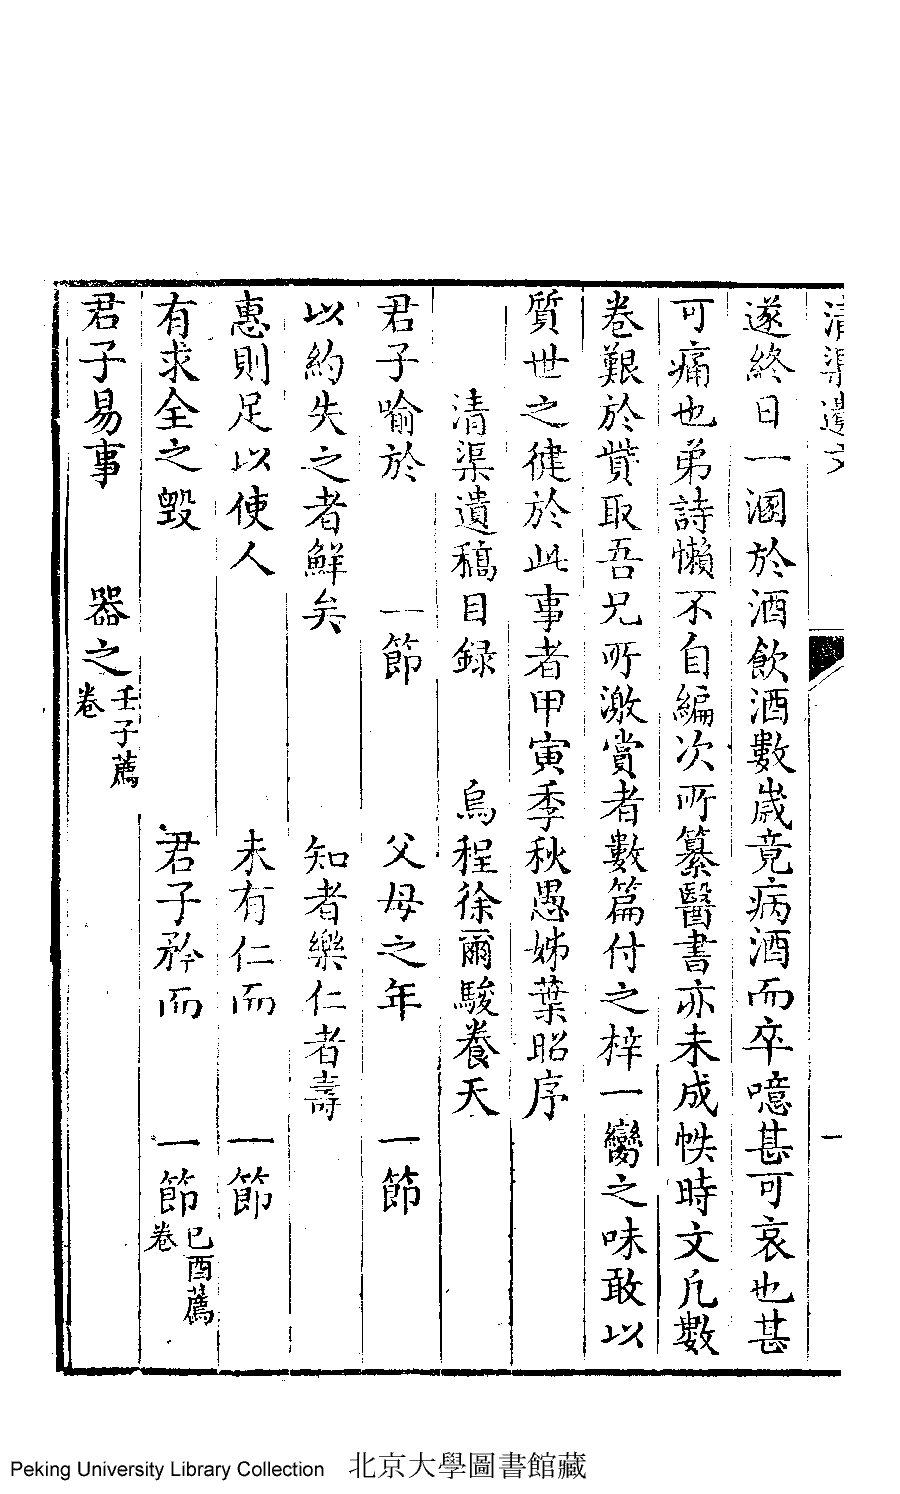 清渠遺文
一
遂終日一溷於酒飲酒數歲竟病酒而卒噫甚可哀也甚
可痛也弟詩懶不自編次所纂醫書亦未成帙時文凡數
卷艱於貲取吾兄所激賞者數篇付之梓一臠之味敢以
質世之健於此事者甲寅季秋愚姊葉昭序
清渠遺稿目録 烏程徐爾駿養天
君子喻於 一節 父母之年 一節
以約失之者鮮矣 知者樂仁者壽
惠則足以使人 未有仁而 一節
有求全之毀 君子矜而 一節 己酉薦卷
君子易事 器之 壬子薦卷
Peking University Library Collection 北京大學圖書館藏